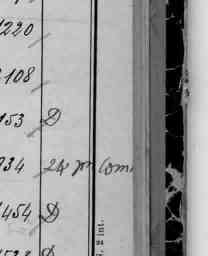 1220
108
153 D
934 24 pr Com
1454 D
D
2 int.